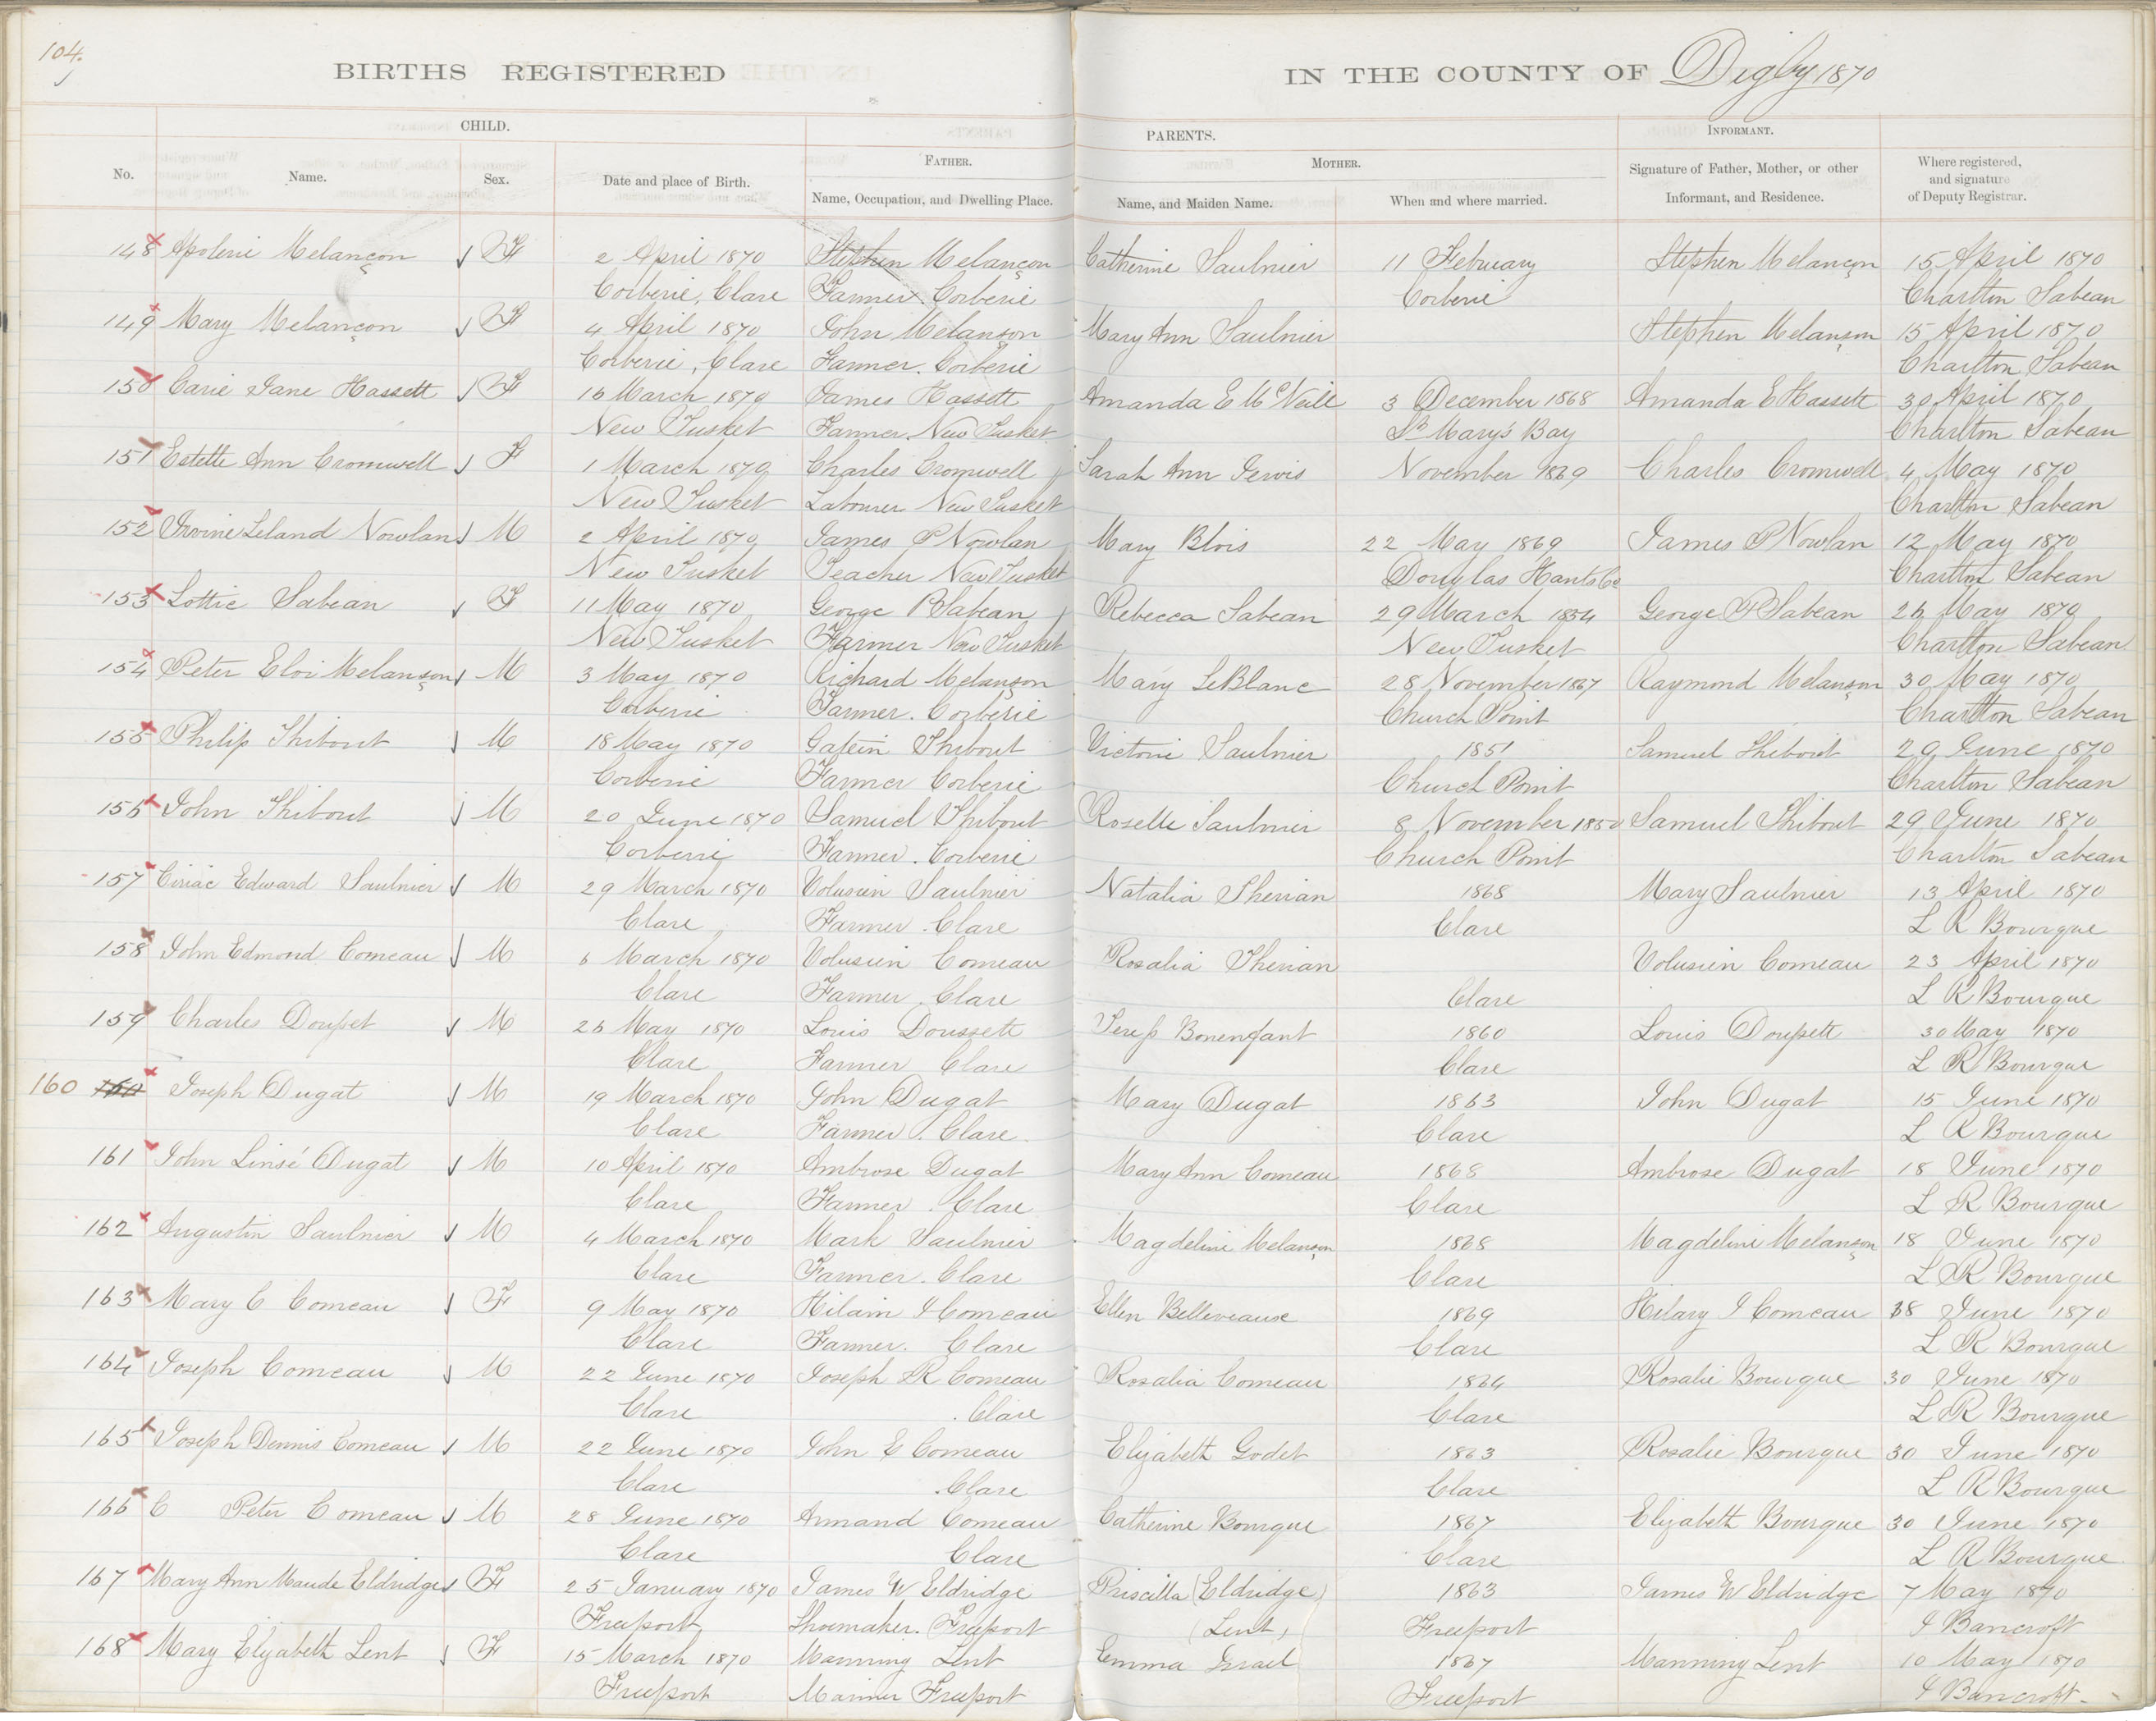 104.
BIRTHS REGISTERED IN THE COUNTY OF Digby 1870
CHILD. PARENTS. INFORMANT.
No. Name. Sex. Date and place of Birth. FATHER. Name, Occupation, and Dwelling Place. MOTHER. Name, and Maiden Name. When and where married. Signature of Father, Mother, or other Informant, and Residence. Where registered, and signature of Deputy Registrar.
148 Apolenie Melançon F 2 April 1870 Stephen Melançon Catherine Saulnier 11 February Stephen Melançon 15 April 1870
Corberie, Clare Farmer Corberie Corberie Charlton Sabean
149 Mary Melançon F 4 April 1870 John Melanson Mary Ann Saulnier Stephen Melanson 15 April 1870
Corberie, Clare Farmer. Corberie Charlton Sabean
150 Carie Jane Hassett F 16 March 1870 James Hassett Amanda E McNeill 3 December 1868 Amanda E Hassett 30 April 1870
New Tusket Farmer. New Tusket St Mary's Bay Charlton Sabean
151 Estelle Ann Cromwell F 1 March 1870 Charles Cromwell Sarah Ann Jervis November 1869 Charles Cromwell 4 May 1870
New Tusket Labourer New Tusket Charlton Sabean
152 Irvine Leland Nowlan M 2 April 1870 James P Nowlan Mary Blois 22 May 1869 James P Nowlan 12 May 1870
New Tusket Teacher New Tusket Douglas Hants Co Charlton Sabean
153 Lottie Sabean F 11 May 1870 George P Sabean Rebecca Sabean 29 March 1854 George P Sabean 26 May 1870
New Tusket Farmer New Tusket New Tusket Charlton Sabean
154 Peter Eloi Melanson M 3 May 1870 Richard Melanson Mary LeBlanc 28 November 1867 Raymond Melanson 30 May 1870
Corberie Farmer. Corberie Church Point Charlton Sabean
155 Philip Thibout M 18 May 1870 Gatein Thibout Victorie Saulnier 1851 Samuel Thibout 29 June 1870
Corberie Farmer Corberie Church Point Charlton Sabean
156 John Thibout M 20 June 1870 Samuel Thibout Roselle Saulnier 8 November 1850 Samuel Thibout 29 June 1870
Corberie Farmer. Corberie Church Point Charlton Sabean
157 Ciriac Edward Saulnier M 29 March 1870 Volusien Saulnier Natalia Therian 1868 Mary Saulnier 13 April 1870
Clare Farmer. Clare Clare L R Bourque
158 John Edmond Comeau M 6 March 1870 Volusien Comeau Rosalia Therian Volusien Comeau 23 April 1870
Clare Farmer. Clare Clare L R Bourque
159 Charles Dousset M 26 May 1870 Louis Doussett Bonenfant 1860 Louis Doussett 30 May 1870
Clare Farmer Clare Clare L R Bourque
160 Joseph Dugat M 19 March 1870 John Dugat Mary Dugat 1863 John Dugat 15 June 1870
Clare Farmer. Clare. Clare L R Bourque
161 John Linsé Dugat M 10 April 1870 Ambrose Dugat Mary Ann Comeau 1868 Ambrose Dugat 18 June 1870
Clare Farmer. Clare Clare L R Bourque
162 Augustin Saulnier M 4 March 1870 Mark Saulnier Magdeline Melanson 1868 Magdeline Melanson 18 June 1870
Clare Farmer. Clare Clare L R Bourque
163 Mary C Comeau F 9 May 1870 Hilain J Comeau Ellen Belleveause 1869 Hilary J Comeau 18 June 1870
Clare Farmer. Clare Clare L R Bourque
164 Joseph Comeau M 22 June 1870 Joseph R Comeau Rosalia Comeau 1864 Rosalie Bourque 30 June 1870
Clare Clare Clare L R Bourque
165 Joseph Dennis Comeau M 22 June 1870 John E Comeau Elizabeth Godet 1863 Rosalie Bourque 30 June 1870
Clare Clare Clare L R Bourque
166 C Peter Comeau M 28 June 1870 Armand Comeau Catherine Bourque 1867 Elizabeth Bourque 30 June 1870
Clare Clare Clare L R Bourque
167 Mary Ann Maude Eldridge F 25 January 1870 James W Eldridge Priscilla (Eldridge) 1863 James W Eldridge 7 May 1870
Freeport Shoemaker. Freeport (Lent) Freeport J Bancroft
168 Mary Elizabeth Lent F 15 March 1870 Manning Lent Emma Israel 1867 Manning Lent 10 May 1870
Freeport Mariner Freeport Freeport J Bancroft.